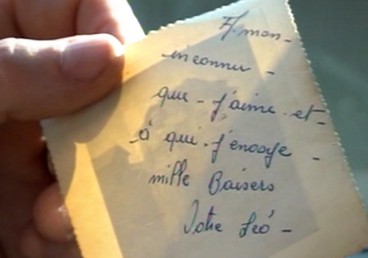 A mon -
inconnu -
que - j'aime - et -
à qui - j'envoye -
mille Baisers
Votre Léo -